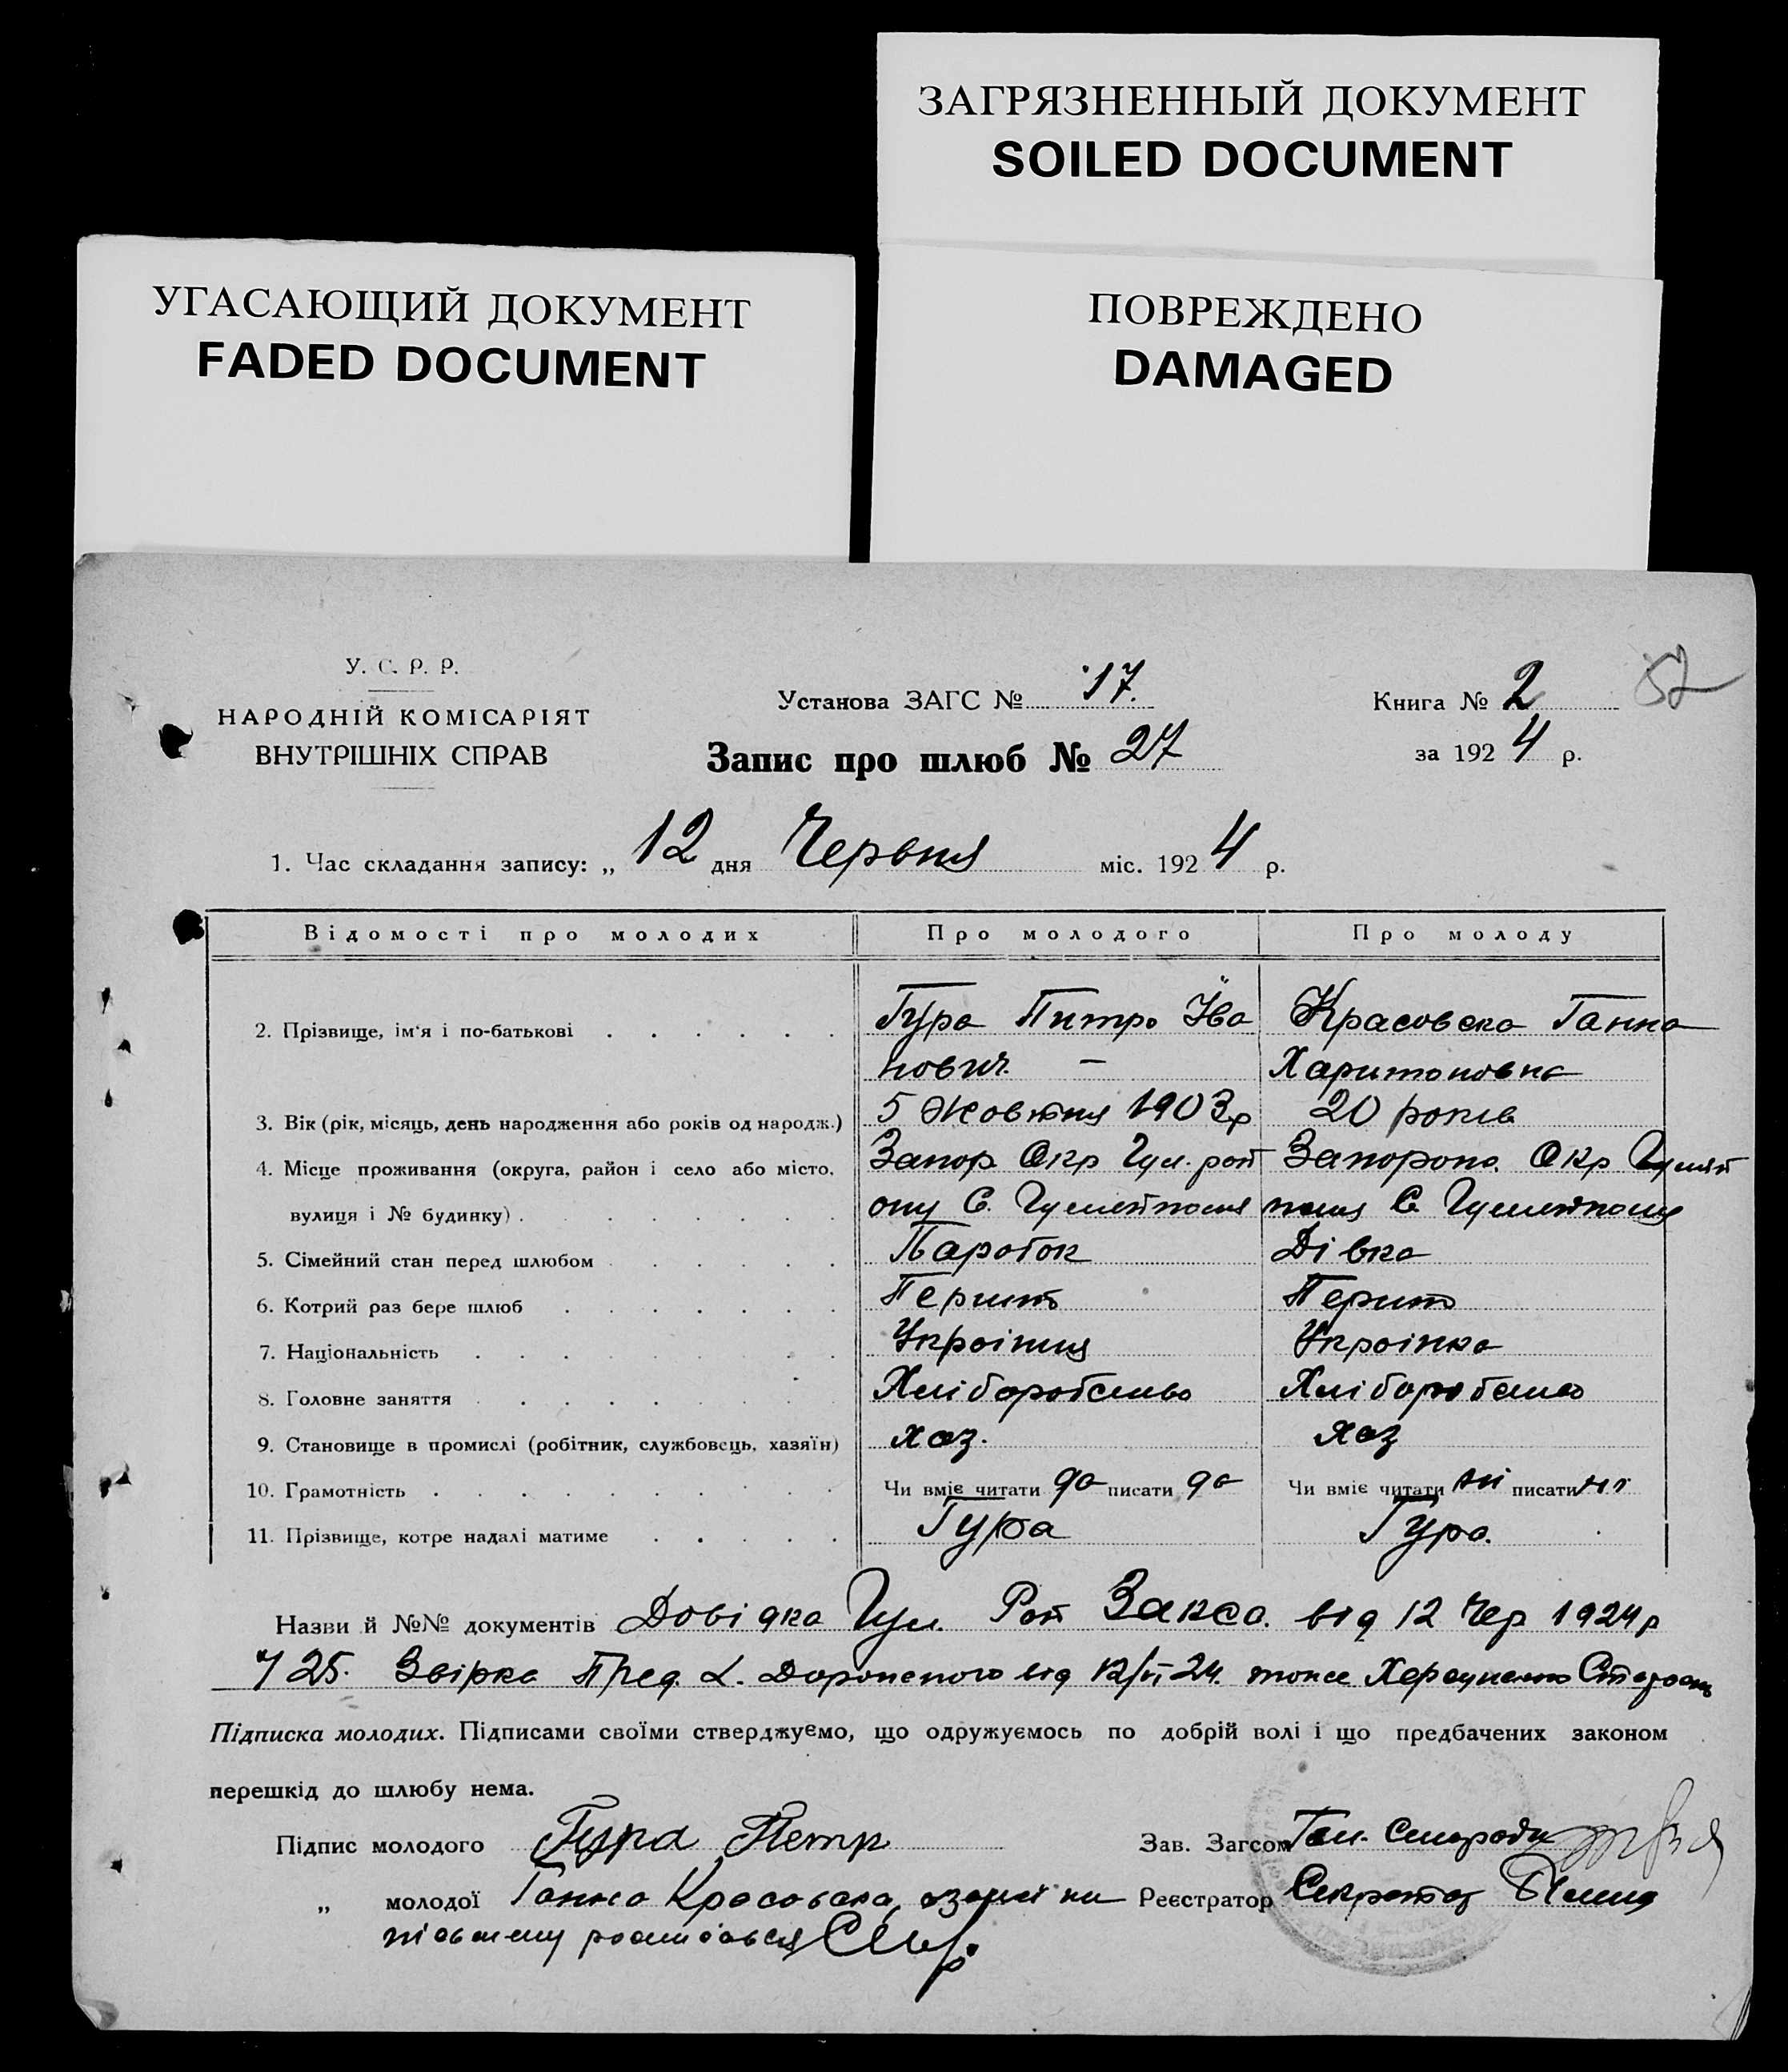 ЗАГРЯЗНЕННЫЙ ДОКУМЕНТ
SOILED DOCUMENT
УГАСАЮЩИЙ ДОКУМЕНТ
FADED DOCUMENT
ПОВРЕЖДЕНО
DAMAGED
У. С. Р. Р.
НАРОДНІЙ КОМІСАРІЯТ
ВНУТРІШНІХ СПРАВ
Установа ЗАГС № 17.
Запис про шлюб № 27
Книга № 2
52
за 1924 р.
1. Час складання запису: „ 12 дня Червня міс. 1924 р.
Відомості про молодих Про молодого Про молоду
2. Прізвище, ім'я і по-батькові Гура Питро Іва Красовска Ганна
нович — Харитоновна
3. Вік (рік, місяць, день народження або років од народж.) 5 Жовтня 1903р 20 років
4. Місце проживання (округа, район і село або місто, Запор Окр Гул. рай Запорож. Окр Гуляй
вулиця і № будинку) ону С. Гуляйполя поля С. Гуляйполя
5. Сімейний стан перед шлюбом Парубок Дівка
6. Котрий раз бере шлюб Перший Перший
7. Національність Украінця Украінка
8. Головне заняття Хліборобство Хліборобство
9. Становище в промислі (робітник, службовець, хазяїн) хаз. хаз
10. Грамотність Чи вміє читати да писати да Чи вміє читати ні писати ні
11. Прізвище, котре надалі матиме Гура Гура.
Назви й №№ документів Довідка Гул. Рай Загса. від 12 Чер 1924р
725. Звірка Пред. від 12/VI 24.
Підписка молодих. Підписами своїми стверджуємо, що одружуємось по добрій волі і що предбачених законом
перешкід до шлюбу нема.
Підпис молодого Гура Петр Зав. Загсом
„ молодої Ганна Красовска, Реєстратор Секретар